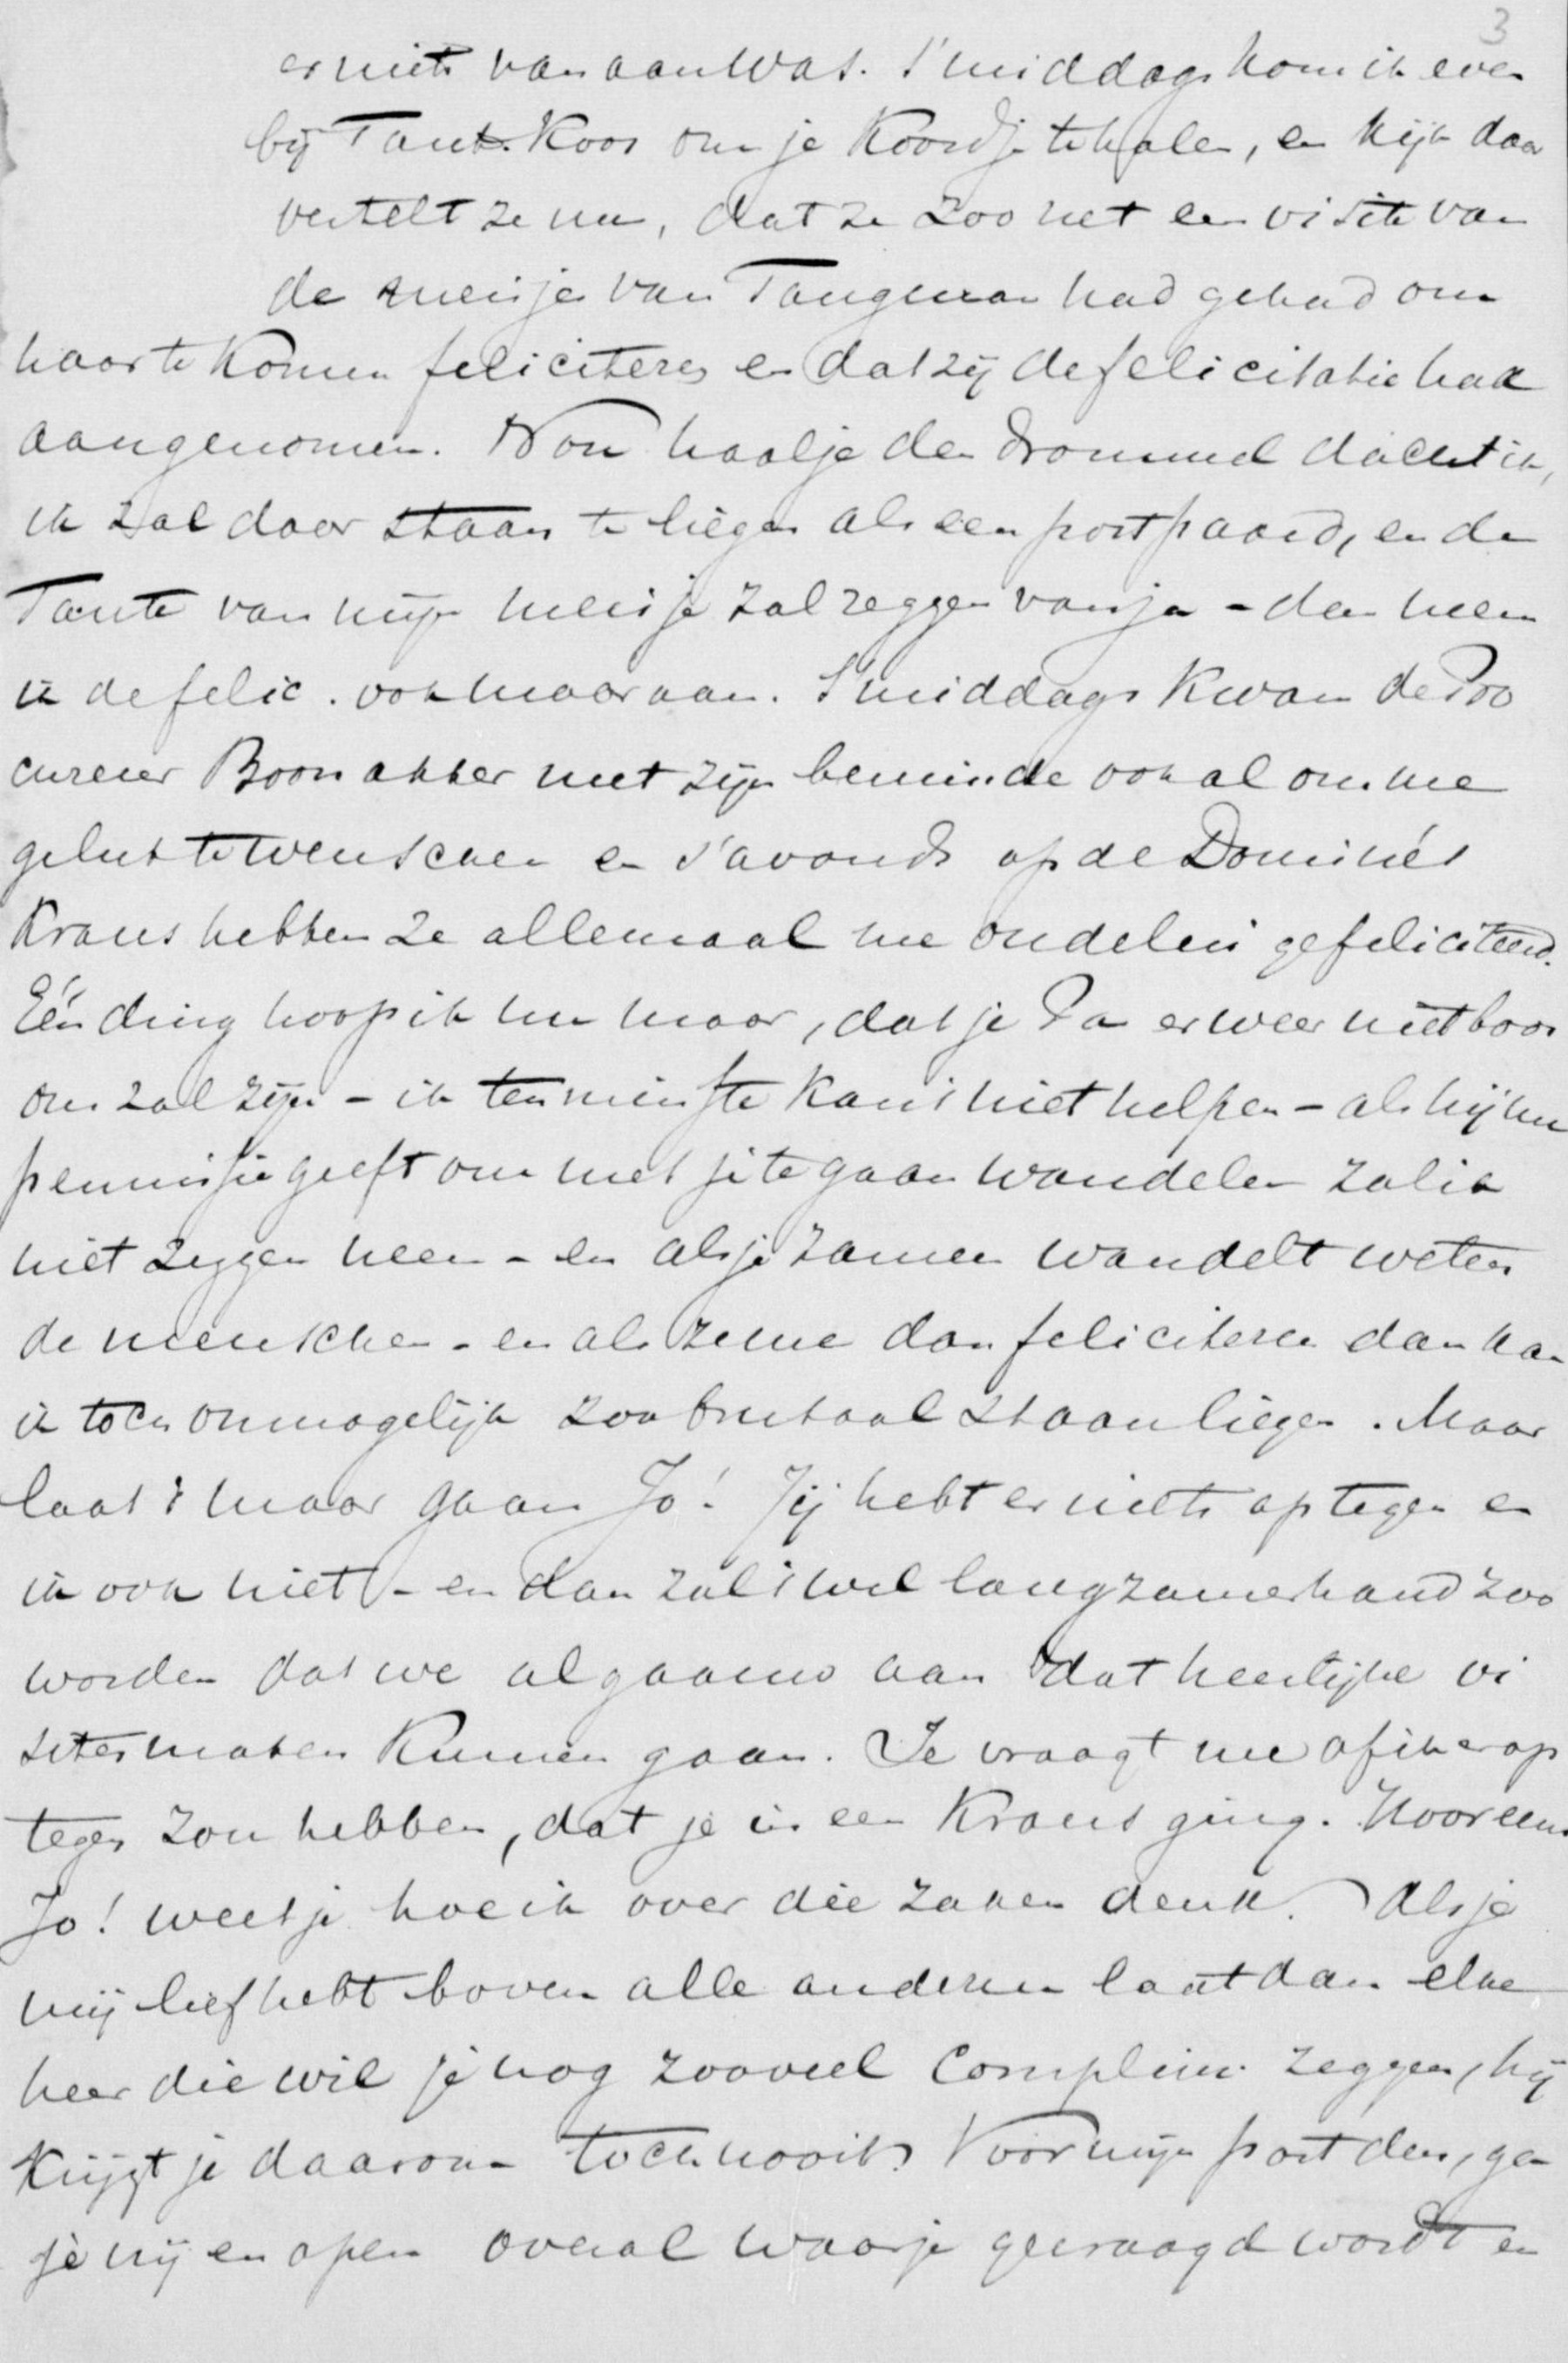 3
er niets van aan was. S'middags kom ik even
bij Tante Koos om je Koordje te halen, en kijk daar
vertelt ze me, dat ze zoo net een visite van
de meisjes van Tangeman had gehad om
haar te komen feliciteren en dat zij de felicitatie had
aangenomen. Nou haal je de drommel dacht ik,
ik zal daar staan te liegen als een postpaard, en de
Tante van mijn meisje zal zeggen van ja - dan neem
ik de felic. ook maar aan. S'middags kwam de Pro
cureur Boonakker met zijn beminde ook al om me
geluk te wenschen en s'avonds op de Dominés
Krans hebben ze allemaal me ondeleis gefeliciteerd.
Eén ding hoop ik nu maar, dat je Pa er weer niet boos
om zal zijn - ik tenminste kan 't niet helpen - als hij me
permissie geeft om met je te gaan wandelen zal ik
niet zeggen neen - en als je zamen wandelt weten
de menschen - en als ze me dan feliciteren dan kan
ik toch onmogelijk zoo brutaal staan liegen. Maar
laat 't maar gaan Jo! Jij hebt er niets op tegen en
ik ook niet - en dan zal 't wel langzamerhand zoo
worden dat we al gaauw aan dat heerlijke vi
sites maken kunnen gaan. Je vraagt me of ik er op
tegen zou hebben, dat je in een Krans ging. Hoor eens
Jo! weet je hoe ik over die zaken denk. Als je
mij lief hebt boven alle anderen laat dan elke
heer die wil je nog zooveel Complim. zeggen, hij
krijgt je daarom toch nooit. Voor mijn part dus, ga
je vrij en open overal waar je gevraagd wordt en